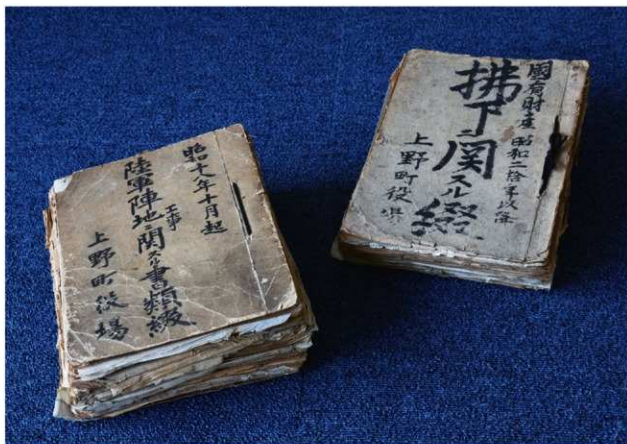 昭和十八年十月起
陸軍陣地工事ニ関スル書類綴
上野町役場
國有財産 昭和二拾年以降
拂下ニ関スル綴
上野町役場